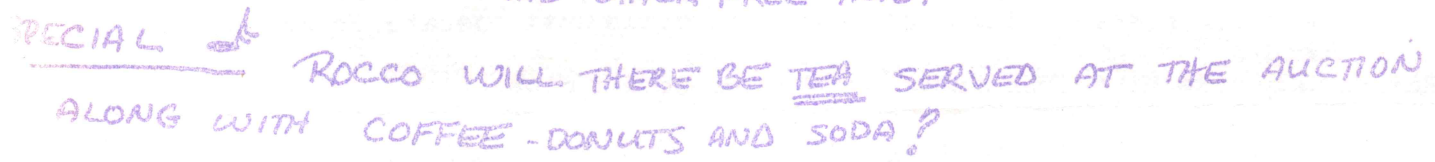 PECIAL
ROCCO WILL THERE BE TEA SERVED AT THE AUCTION
ALONG WITH COFFEE - DONUTS AND SODA?